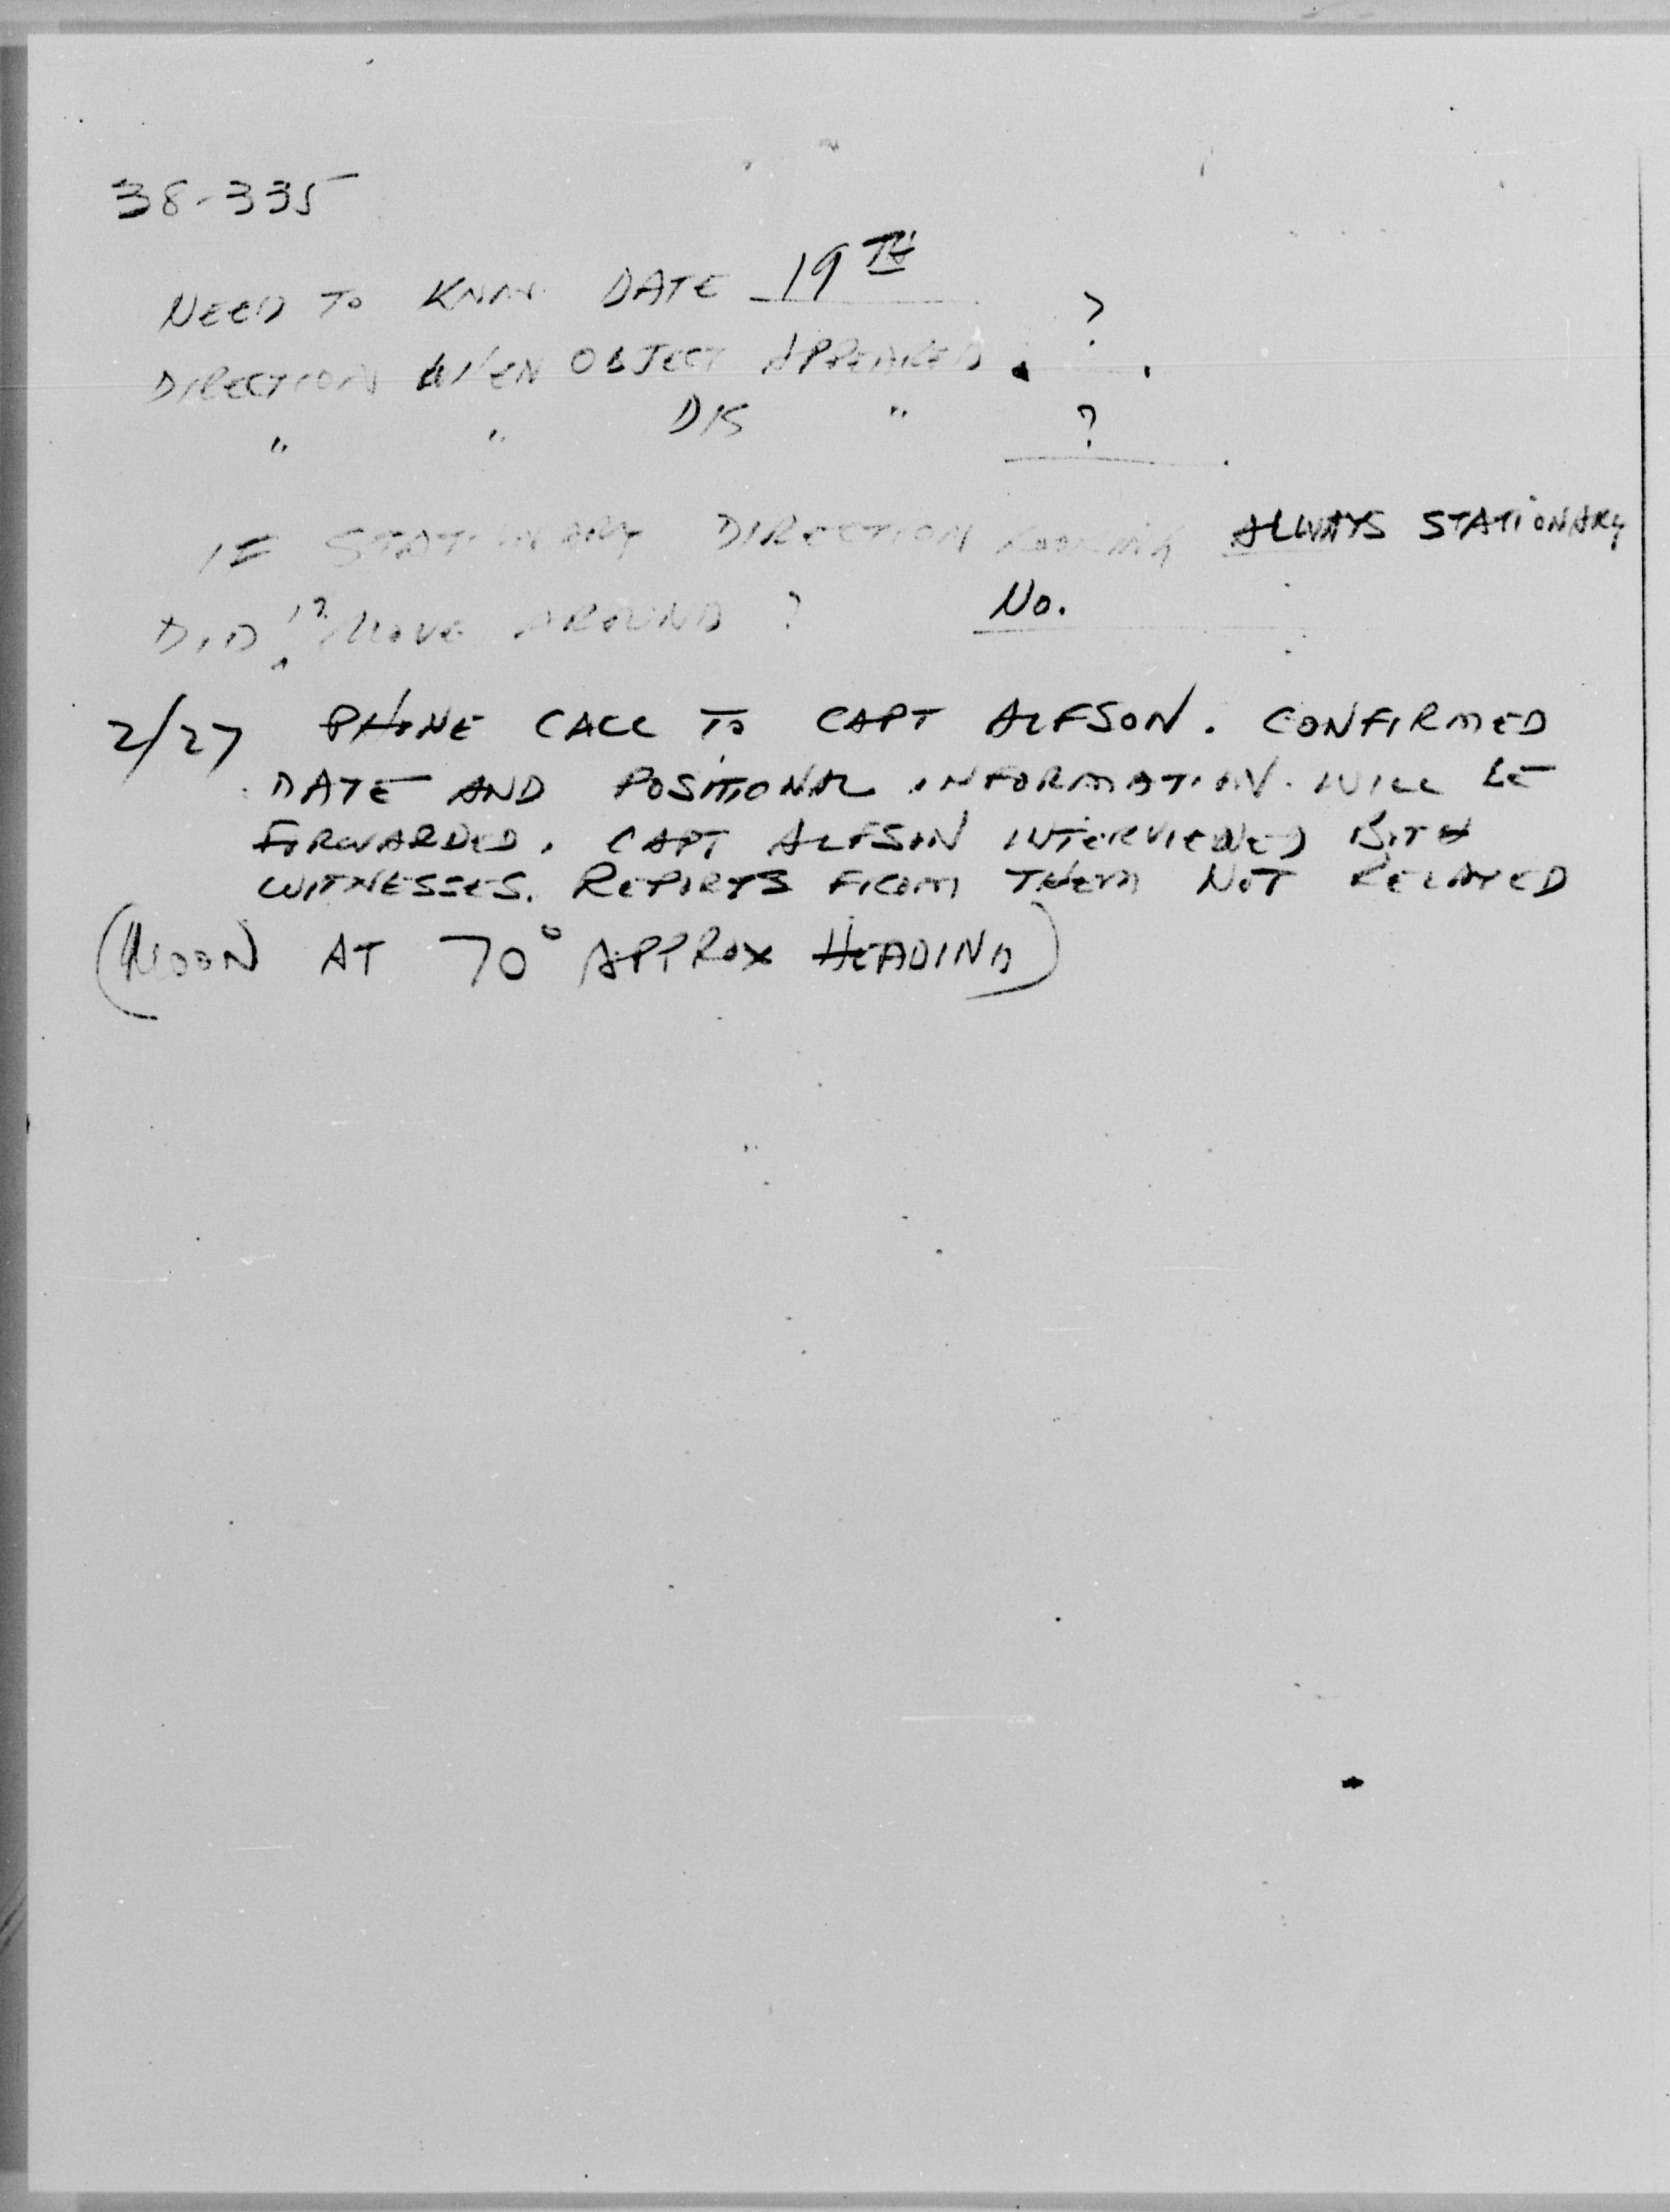 38-335
NEED TO KNOW DATE 19TH
DIRECTION WHEN OBJECT APPEARED . ? .
" " DIS " ? .
IF STATIONARY DIRECTION LOOKING ALWAYS STATIONARY
DID IT MOVE AROUND ? No.
2/27 PHONE CALL TO CAPT ALFSON. CONFIRMED
DATE AND POSITIONAL INFORMATION. WILL BE
FORWARDED. CAPT ALFSON INTERVIEWED BOTH
WITNESSES. REPORTS FROM THEM NOT RELAYED
(MOON AT 70° APPROX HEADING)